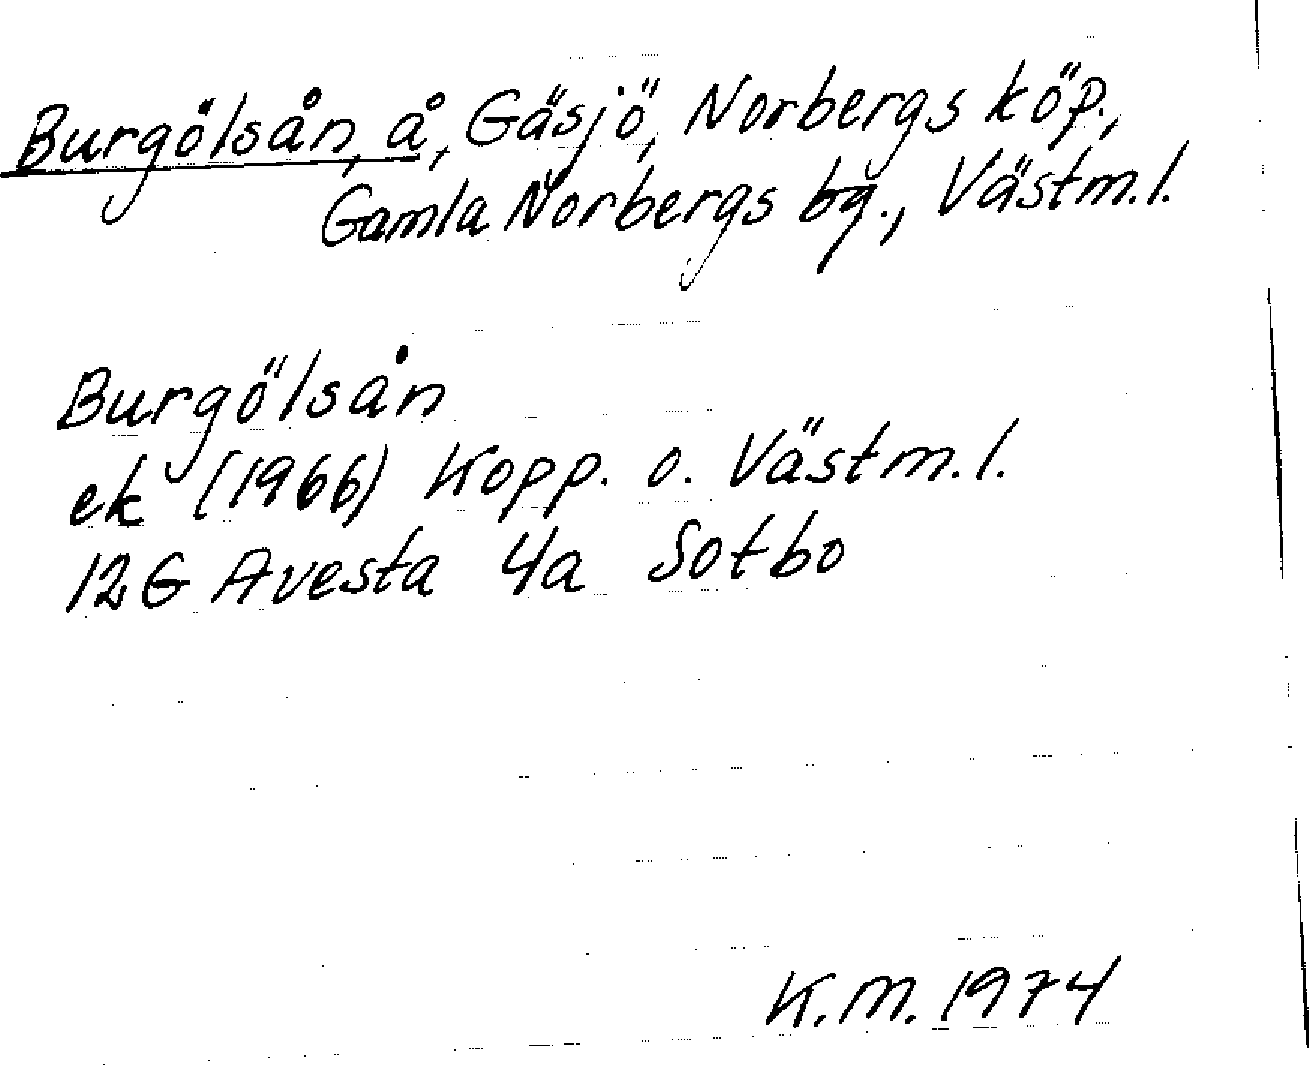 Burgölsån, å, Gäsjö, Norbergs köp.,
Gamla Norbergs bg., Västm.l.
Burgölsån
ek (1966) Kopp. o. Västm.l.
12G Avesta 4a Sotbo
K.M. 1974